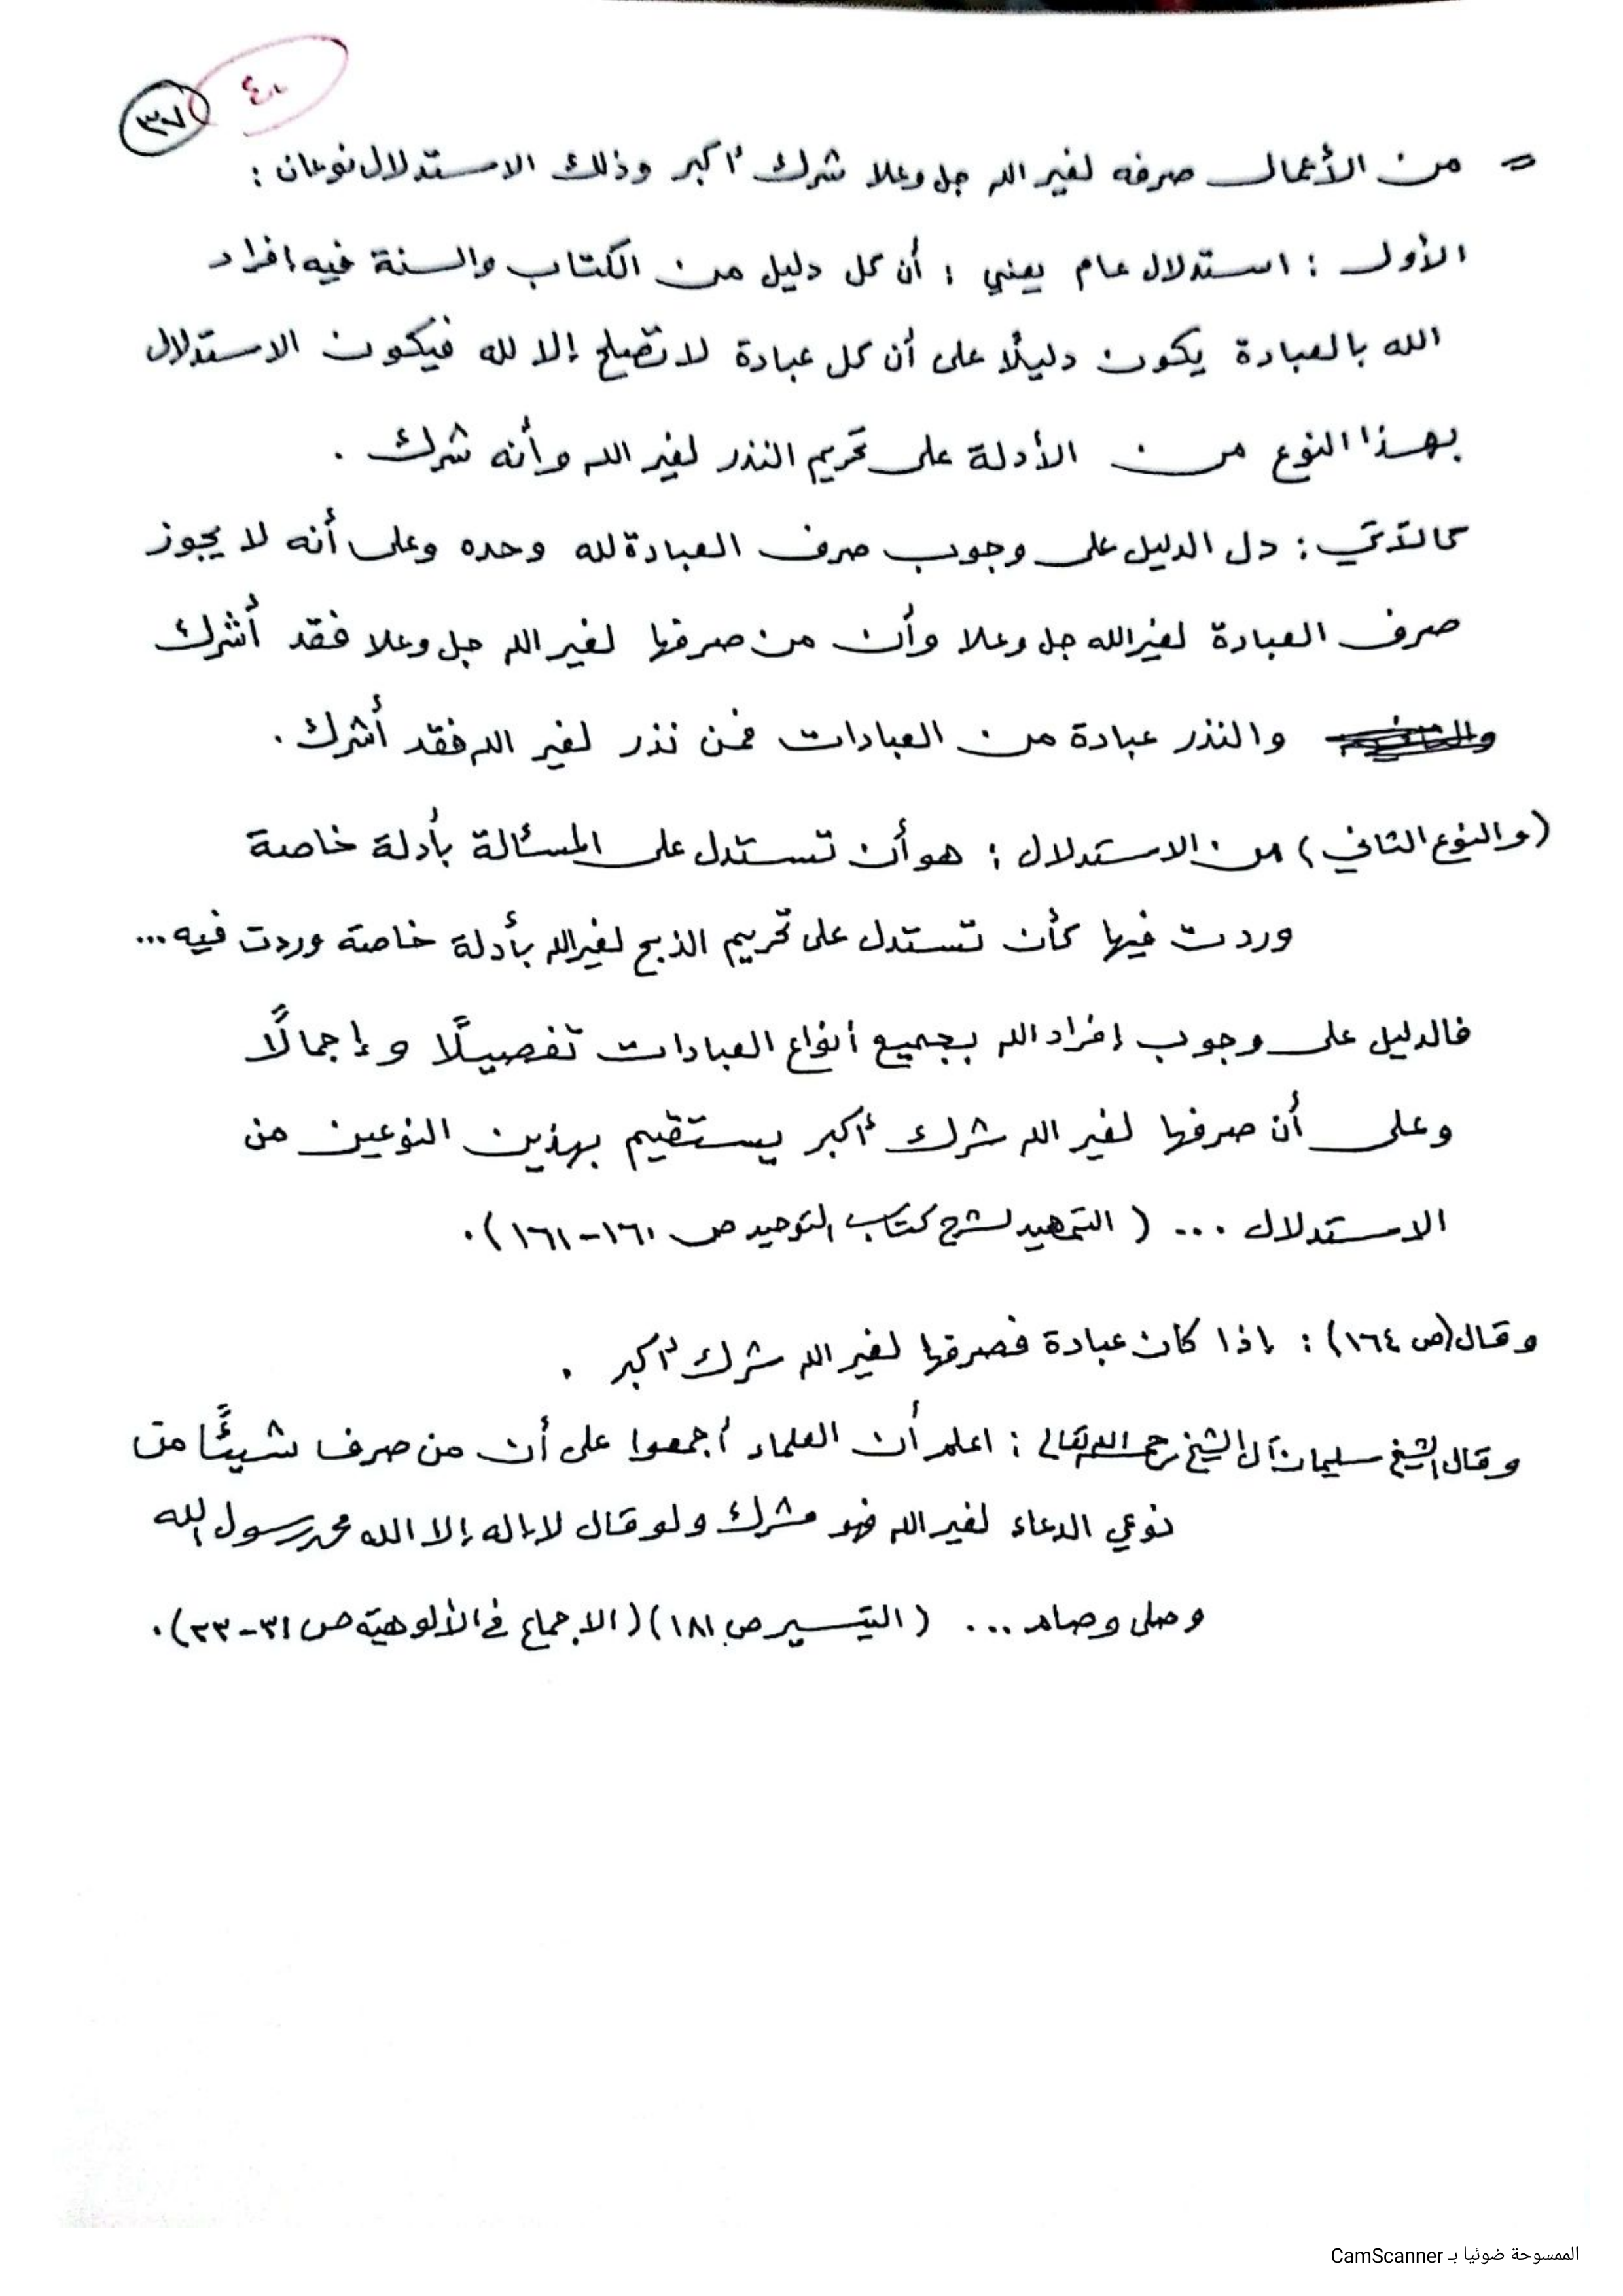 ٤٠
٣٧
= من الأعمال صرفه لغير الله جل وعلا شرك أكبر وذلك الاستدلال نوعان :
الأول : استدلال عام يعني : أن كل دليل من الكتاب والسنة فيه إفراد
الله بالعبادة يكون دليلًا على أن كل عبادة لا تصلح إلا لله فيكون الاستدلال
بهذا النوع من الأدلة على تحريم النذر لغير الله وأنه شرك .
كالآتي : دل الدليل على وجوب صرف العبادة لله وحده وعلى أنه لا يجوز
صرف العبادة لغير الله جل وعلا وأن من صرفها لغير الله جل وعلا فقد أشرك
والنذر عبادة من العبادات فمن نذر لغير الله فقد أشرك .
(والنوع الثاني) من الاستدلال : هو أن تستدل على المسئالة بأدلة خاصة
وردت فيها كأن تستدل على تحريم الذبح لغير الله بأدلة خاصة وردت فيه ...
فالدليل على وجوب إفراد الله بجميع أنواع العبادات تفصيلًا وإجمالًا
وعلى أن صرفها لغير الله شرك أكبر يستقيم بهذين النوعين من
الاستدلال ... ( التمهيد لشرح كتاب التوحيد ص ١٦٠-١٦١) .
وقال (ص ١٦٤) : إذا كان عبادة فصرفها لغير الله شرك أكبر .
وقال الشيخ سليمان آل الشيخ رحمه الله تعالى : اعلم أن العلماء أجمعوا على أن من صرف شيئًا من
نوعي الدعاء لغير الله فهو مشرك ولو قال لا إله إلا الله محمد رسول الله
وصلى وصام ... ( التيسير ص ١٨١) ( الاجماع في الألوهية ص ٣١-٣٣) .
الممسوحة ضوئيا بـ CamScanner